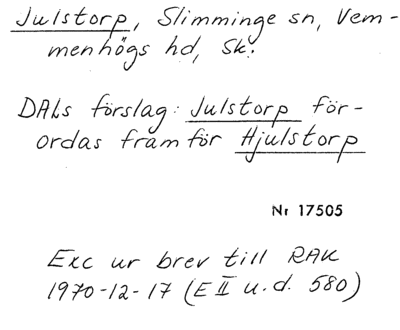 Julstorp, Slimminge sn, Vem-
menhögs hd, Sk.
DALs förslag: Julstorp för-
ordas framför Hjulstorp
Nr 17505
Exc ur brev till RAK
1970-12-17 (E II u.d. 580)